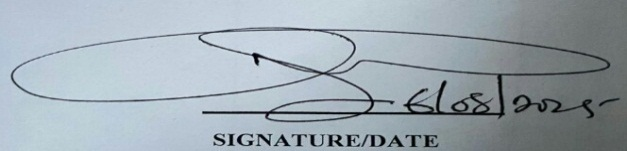 6/08/2025
SIGNATURE/DATE